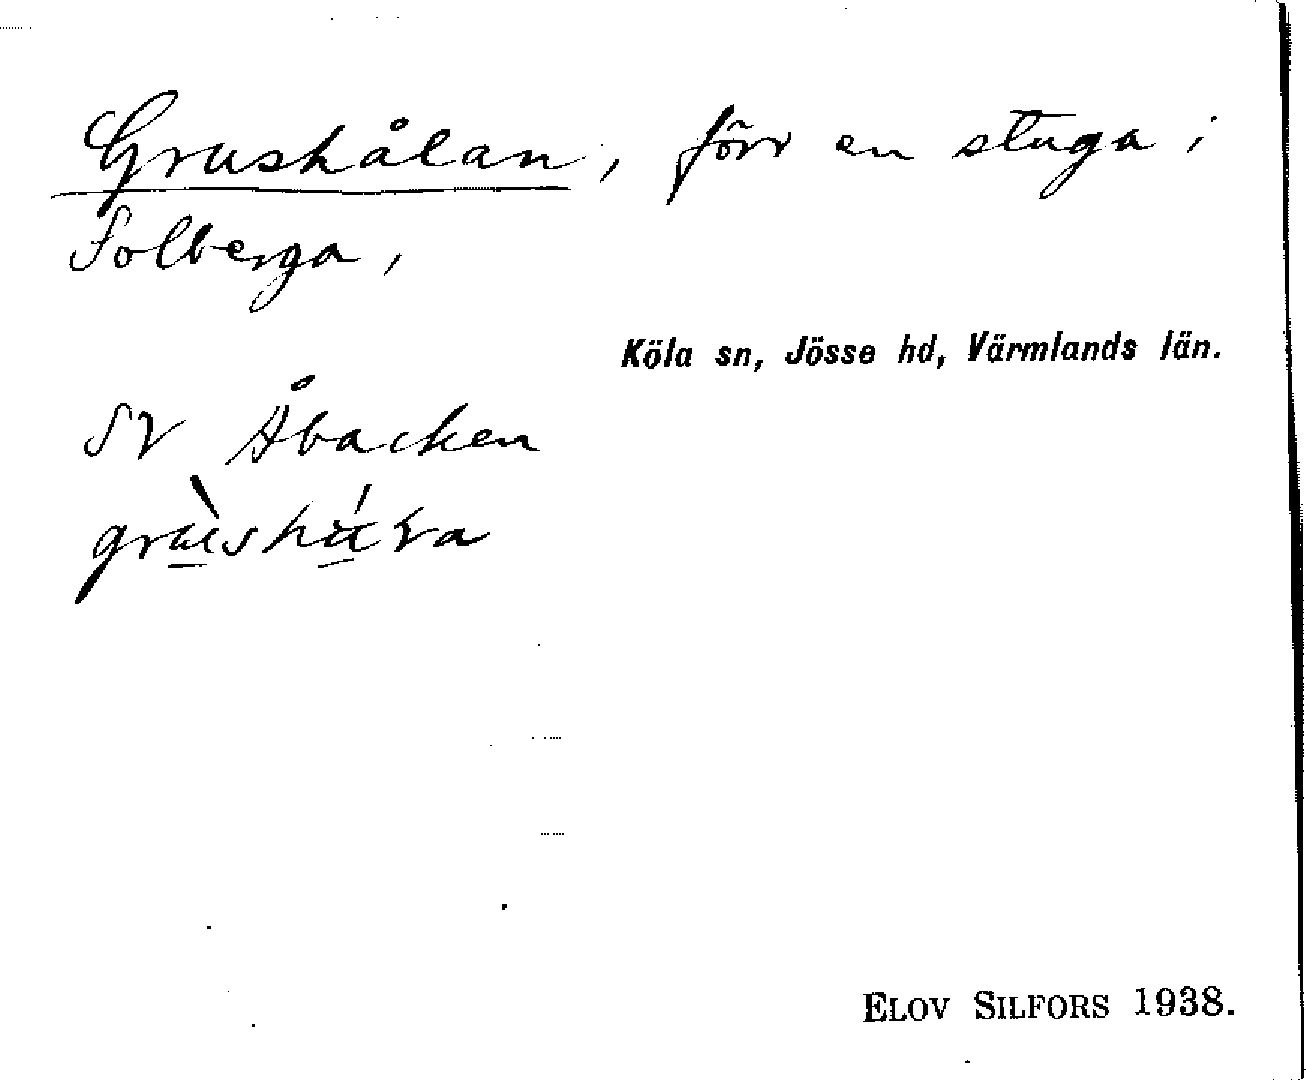 Grushålan, förr en stuga i
Solberga,
Köla sn, Jösse hd, Värmlands län.
SV Åbacken
ELOV SILFORS 1938.